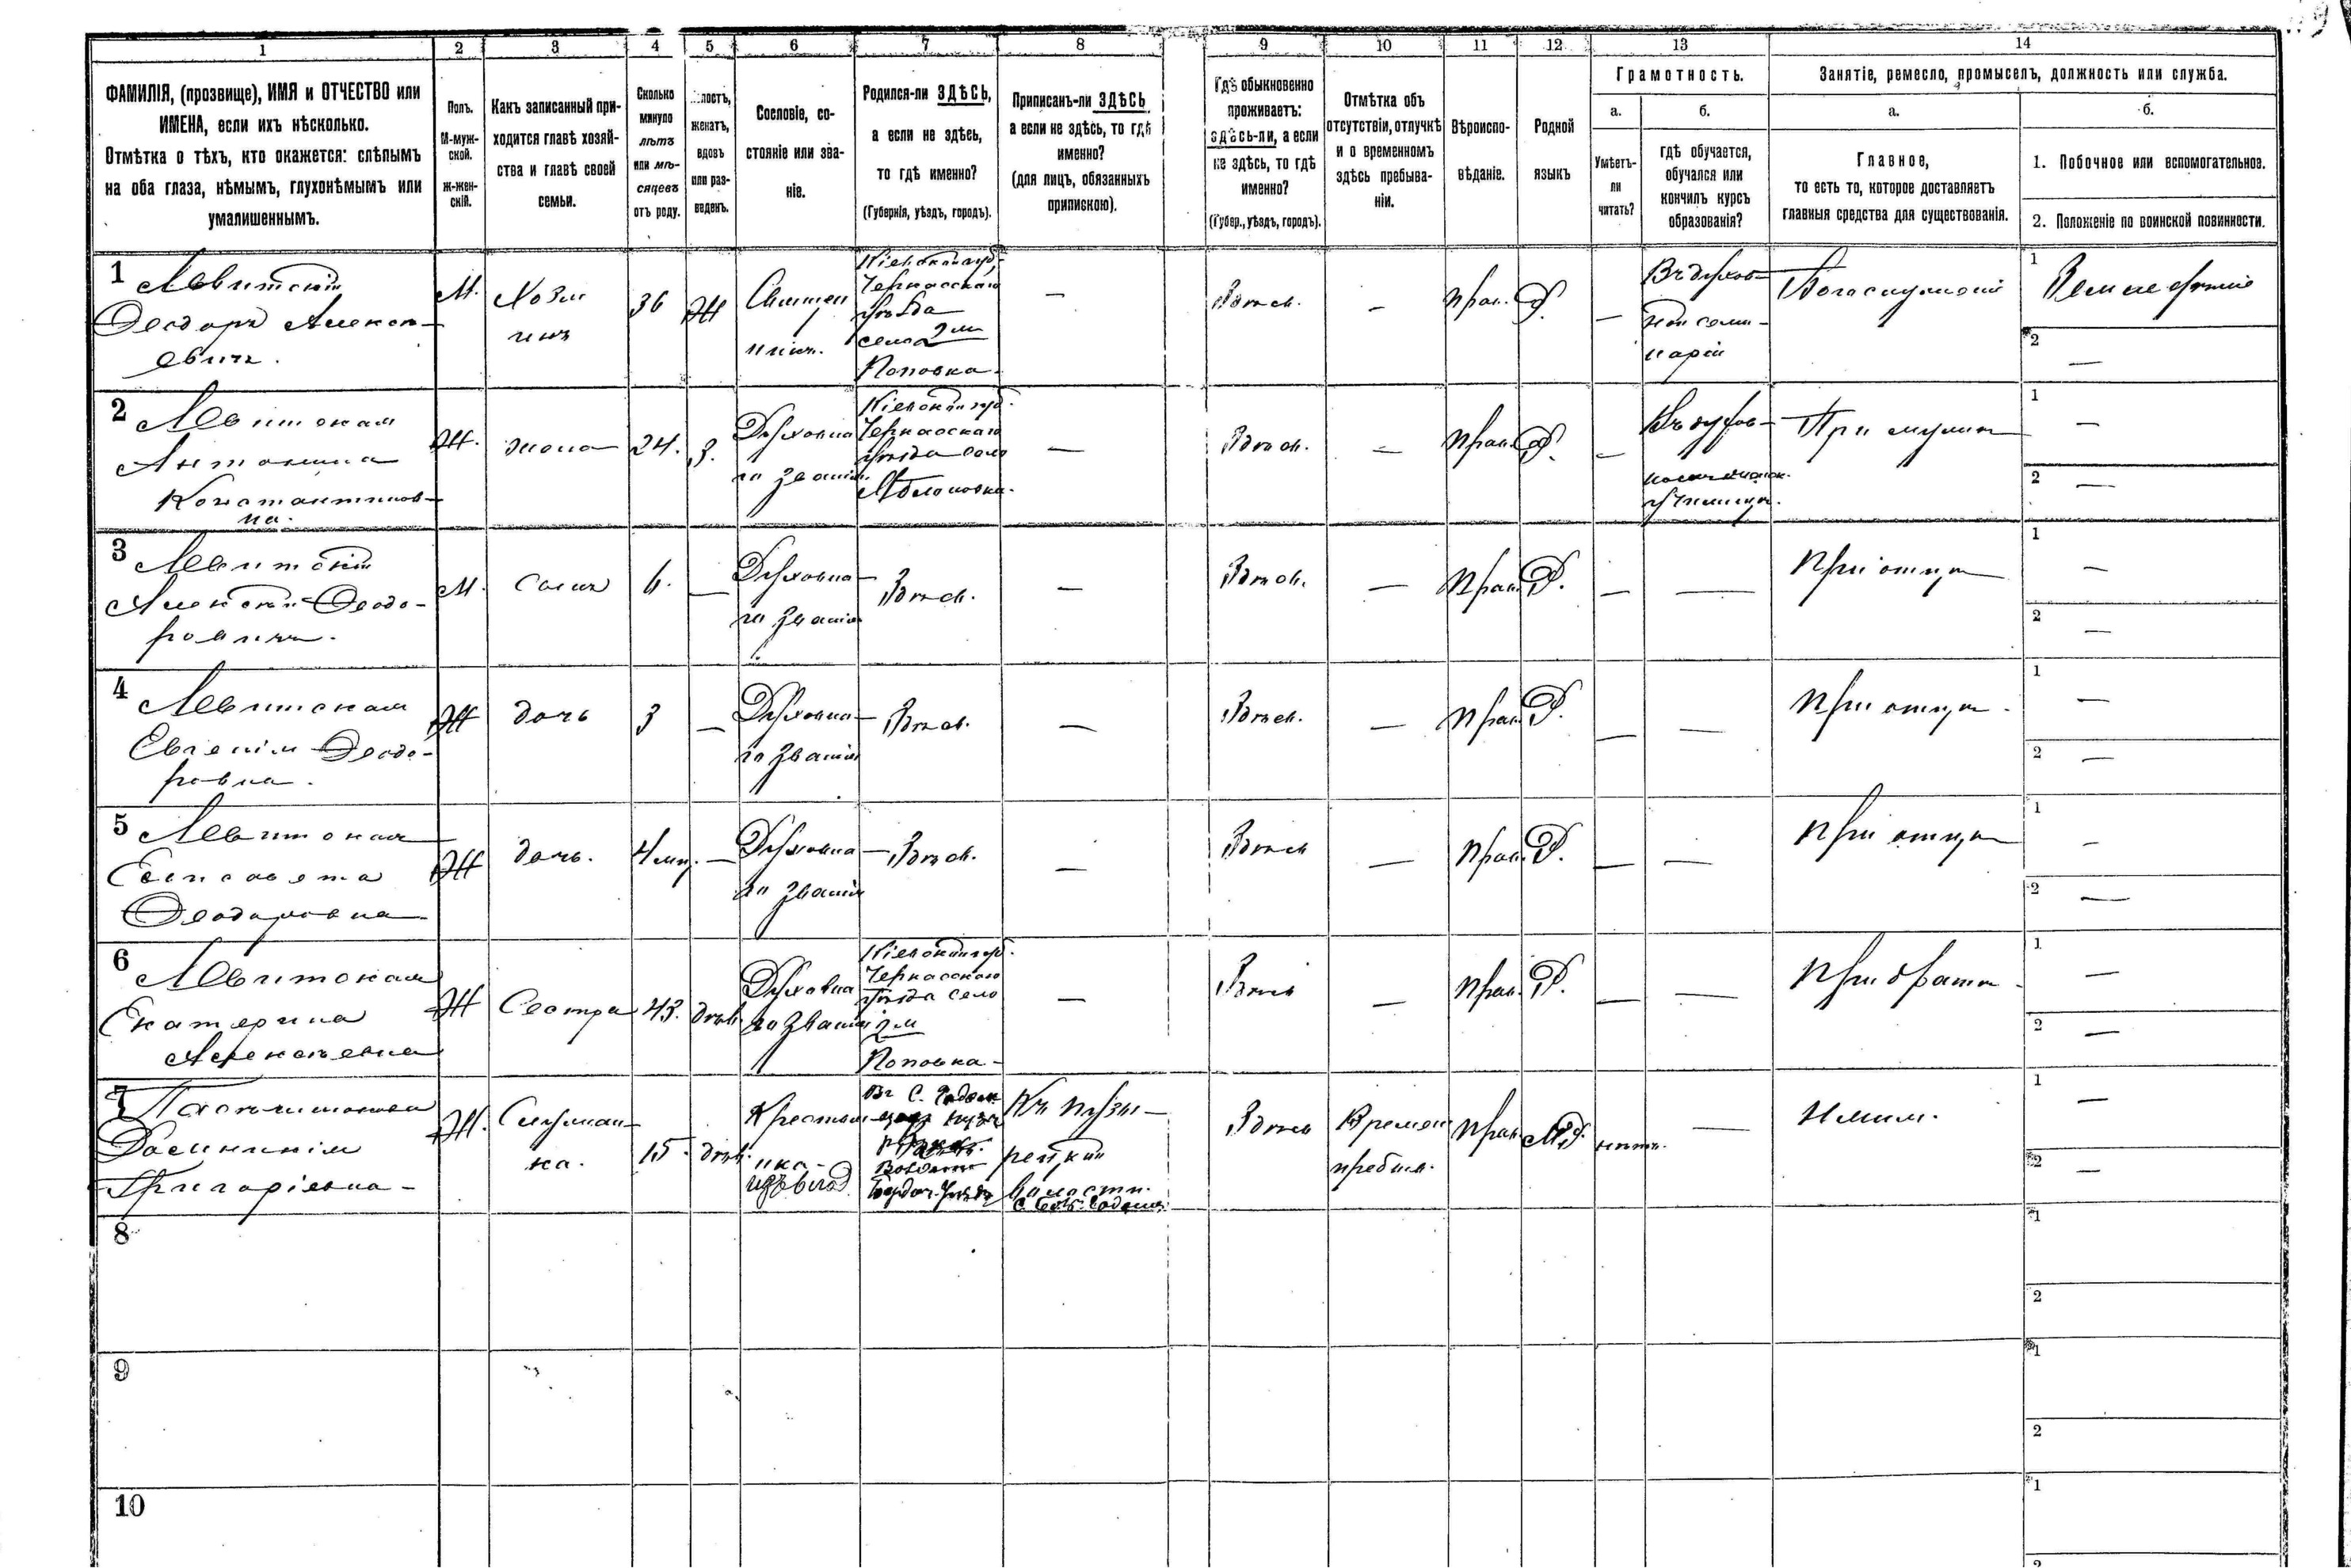 1 2 3 4 5 6 7 8 9 10 11 12 13 14
ФАМИЛІЯ, (прозвище), ИМЯ и ОТЧЕСТВО или
ИМЕНА, если ихъ нѣсколько.
Отмѣтка о тѣхъ, кто окажется: слѣпымъ
на оба глаза, нѣмымъ, глухонѣмымъ или
умалишеннымъ.
Полъ.
М-муж-
ской.
ж-жен-
скій.
Какъ записанный при-
ходится главѣ хозяй-
ства и главѣ своей
семьи.
Сколько
минуло
лѣтъ
или мѣ-
сяцевъ
отъ роду.
лостъ,
женатъ,
вдовъ
или раз-
веденъ.
Сословіе, со-
стояніе или зва-
ніе.
Родился-ли ЗДѢСЬ,
а если не здѣсь,
то гдѣ именно?
(Губернія, уѣздъ, городъ).
Приписанъ-ли ЗДѢСЬ
а если не здѣсь, то гдѣ
именно?
(для лицъ, обязанныхъ
припискою).
Гдѣ обыкновенно
проживаетъ:
здѣсь-ли, а если
не здѣсь, то гдѣ
именно?
(Губер., уѣздъ, городъ).
Отмѣтка объ
отсутствіи, отлучкѣ
и о временномъ
здѣсь пребыва-
ніи.
Вѣроиспо-
вѣданіе.
Родной
языкъ
Грамотность.
а.
Умѣетъ-
ли
читать?
б.
гдѣ обучается,
обучался или
кончилъ курсъ
образованія?
Занятіе, ремесло, промыселъ, должность или служба.
а.
Главное,
то есть то, которое доставляетъ
главныя средства для существованія.
б.
1. Побочное или вспомогательное.
2. Положеніе по воинской повинности.
1 Левитскій
Ѳеодоръ Алексѣ-
евичъ.
М.
Хозя
инъ
36
Ж
Священ
никъ.
Кіевской губ.
Черкасскаго
уѣзда
села
Поповка
—
Здѣсь.
—
Прав.
Р.
—
Въ духов-
ной семи-
наріи
Богослуженіе
1 Земледѣліе
2 —
2 Левитская
Антонина
Константинов-
на.
Ж.
жена
24.
З.
Духовна
го званія
Кіевской губ.
Черкасскаго
уѣзда село
—
Здѣсь.
—
Прав.
Р.
—
Въ духов-
училищѣ.
При мужѣ
1 —
2 —
3 Левитскій
Алексѣй Ѳеодо-
ровичъ.
М.
Сынъ
6.
—
Духовна-
го званія
Здѣсь.
—
Здѣсь.
—
Прав.
Р.
—
—
При отцѣ
1 —
2 —
4 Левитская
Евгенія Ѳеодо-
ровна.
Ж
дочь
3
—
Духовна-
го званія
Здѣсь.
—
Здѣсь.
—
Прав.
Р.
—
—
При отцѣ
1 —
2 —
5 Левитская
Елисавета
Ѳеодоровна
Ж
дочь.
4 мц.
—
Духовна-
го званія
Здѣсь.
—
Здѣсь
—
Прав.
Р.
—
—
При отцѣ
1 —
2 —
6 Левитская
Екатерина
Алексѣевна
Ж
Сестра
43.
дѣв.
Духовна
го званія
Кіевской губ.
Черкасскаго
уѣзда село
Поповка
—
Здѣсь
—
Прав.
Р.
—
—
При братѣ
1 —
2 —
7
Григоріевна
Ж.
Служан-
ка.
15.
дѣв.
Крестьян
ка
Волости
Къ Пузы-
рецкой
волости.
Здѣсь
Времен
пребыв.
Прав.
М.Р.
нѣтъ.
—
Няня.
1 —
2 —
8
1
2
9
1
2
10
1
2